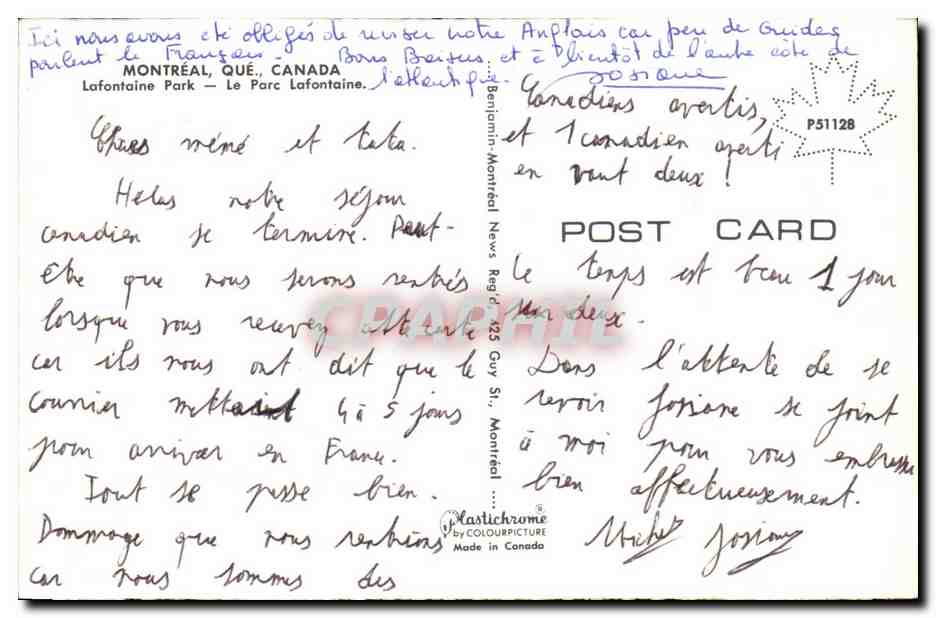 Ici nous avons été obligés de réviser notre Anglais car peu de Guides
parlent le Français. Bons Baisers et à bientôt de l'autre côté de
l'atlantique. Josiane
MONTRÉAL, QUÉ., CANADA
Lafontaine Park — Le Parc Lafontaine.
Chers mémé et tata.
Hélas notre séjour
canadien se termine. Peut-
être que nous serons rentrés
lorsque vous recevez cette carte
car ils nous ont dit que le
courrier mettait 4 à 5 jours
pour arriver en France.
Tout se passe bien.
Dommage que nous rentrions
car nous sommes des
Benjamin-Montréal News Reg'd, 425 Guy St., Montréal ....
Plastichrome ®
by COLOURPICTURE
Made in Canada
Canadiens avertis,
et 1 canadien averti
en vaut deux !
P51128
POST CARD
Le temps est beau 1 jour
sur deux.
Dans l'attente de se
revoir Josiane se joint
à moi pour vous embrasser
bien affectueusement.
Michel Josiane
CPAPHIL